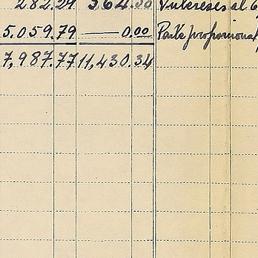 282.29 364.30 Intereses al 6
5.059.79 — 0.00 Parte proporcional
7,987.77 11,430.34